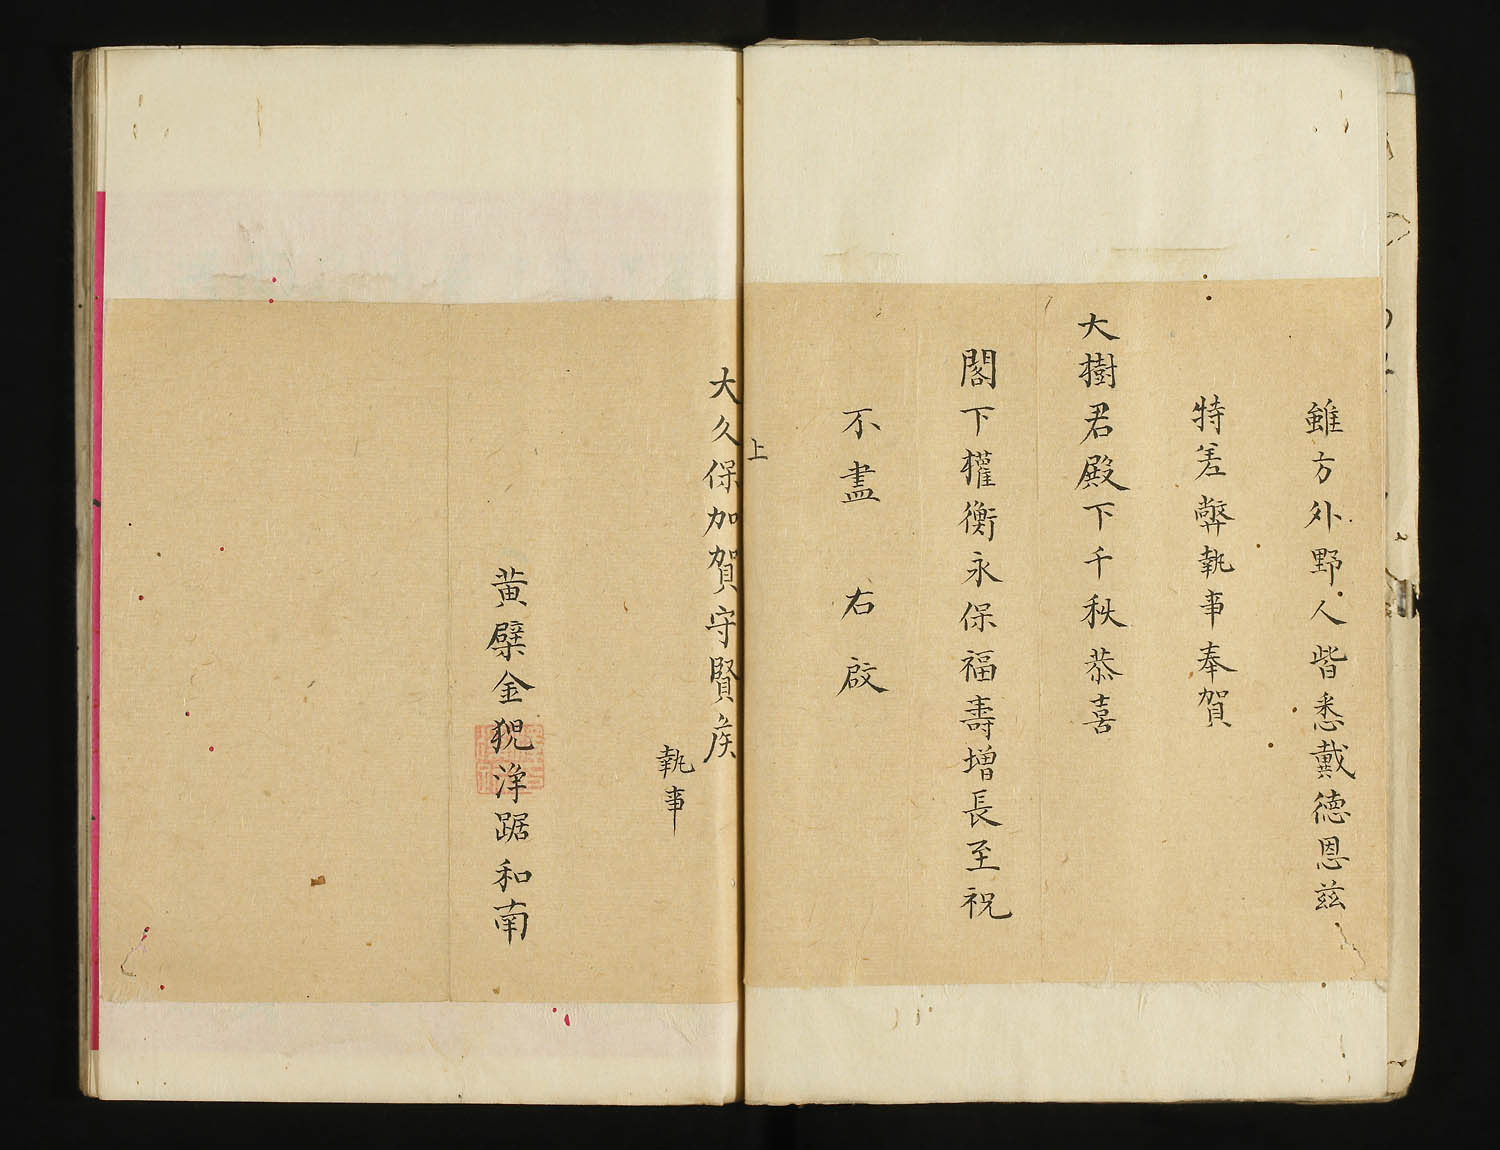 雖方外野人皆悉戴德恩兹
特差弊執事奉賀
大樹君殿下千秩恭喜
閣下權衡永保福壽增長至祝
不盡 右啟
上
大久保加賀守賢侯
執事
黄檗金猊淨踞和南